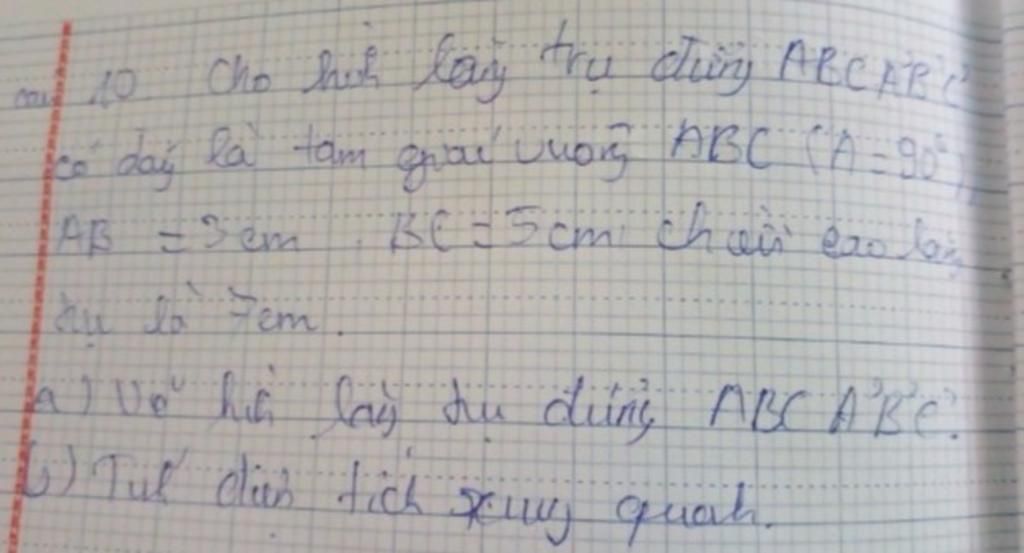 Câu 10 Cho hình lăng trụ đứng ABC A'B'C'
có đáy là tam giác vuông ABC (A = 90°),
AB = 3cm. BC = 5cm chiều cao lăng
trụ là 7cm.
a) Vẽ hình lăng trụ đứng ABC A'B'C'.
b) Tính diện tích xung quanh.